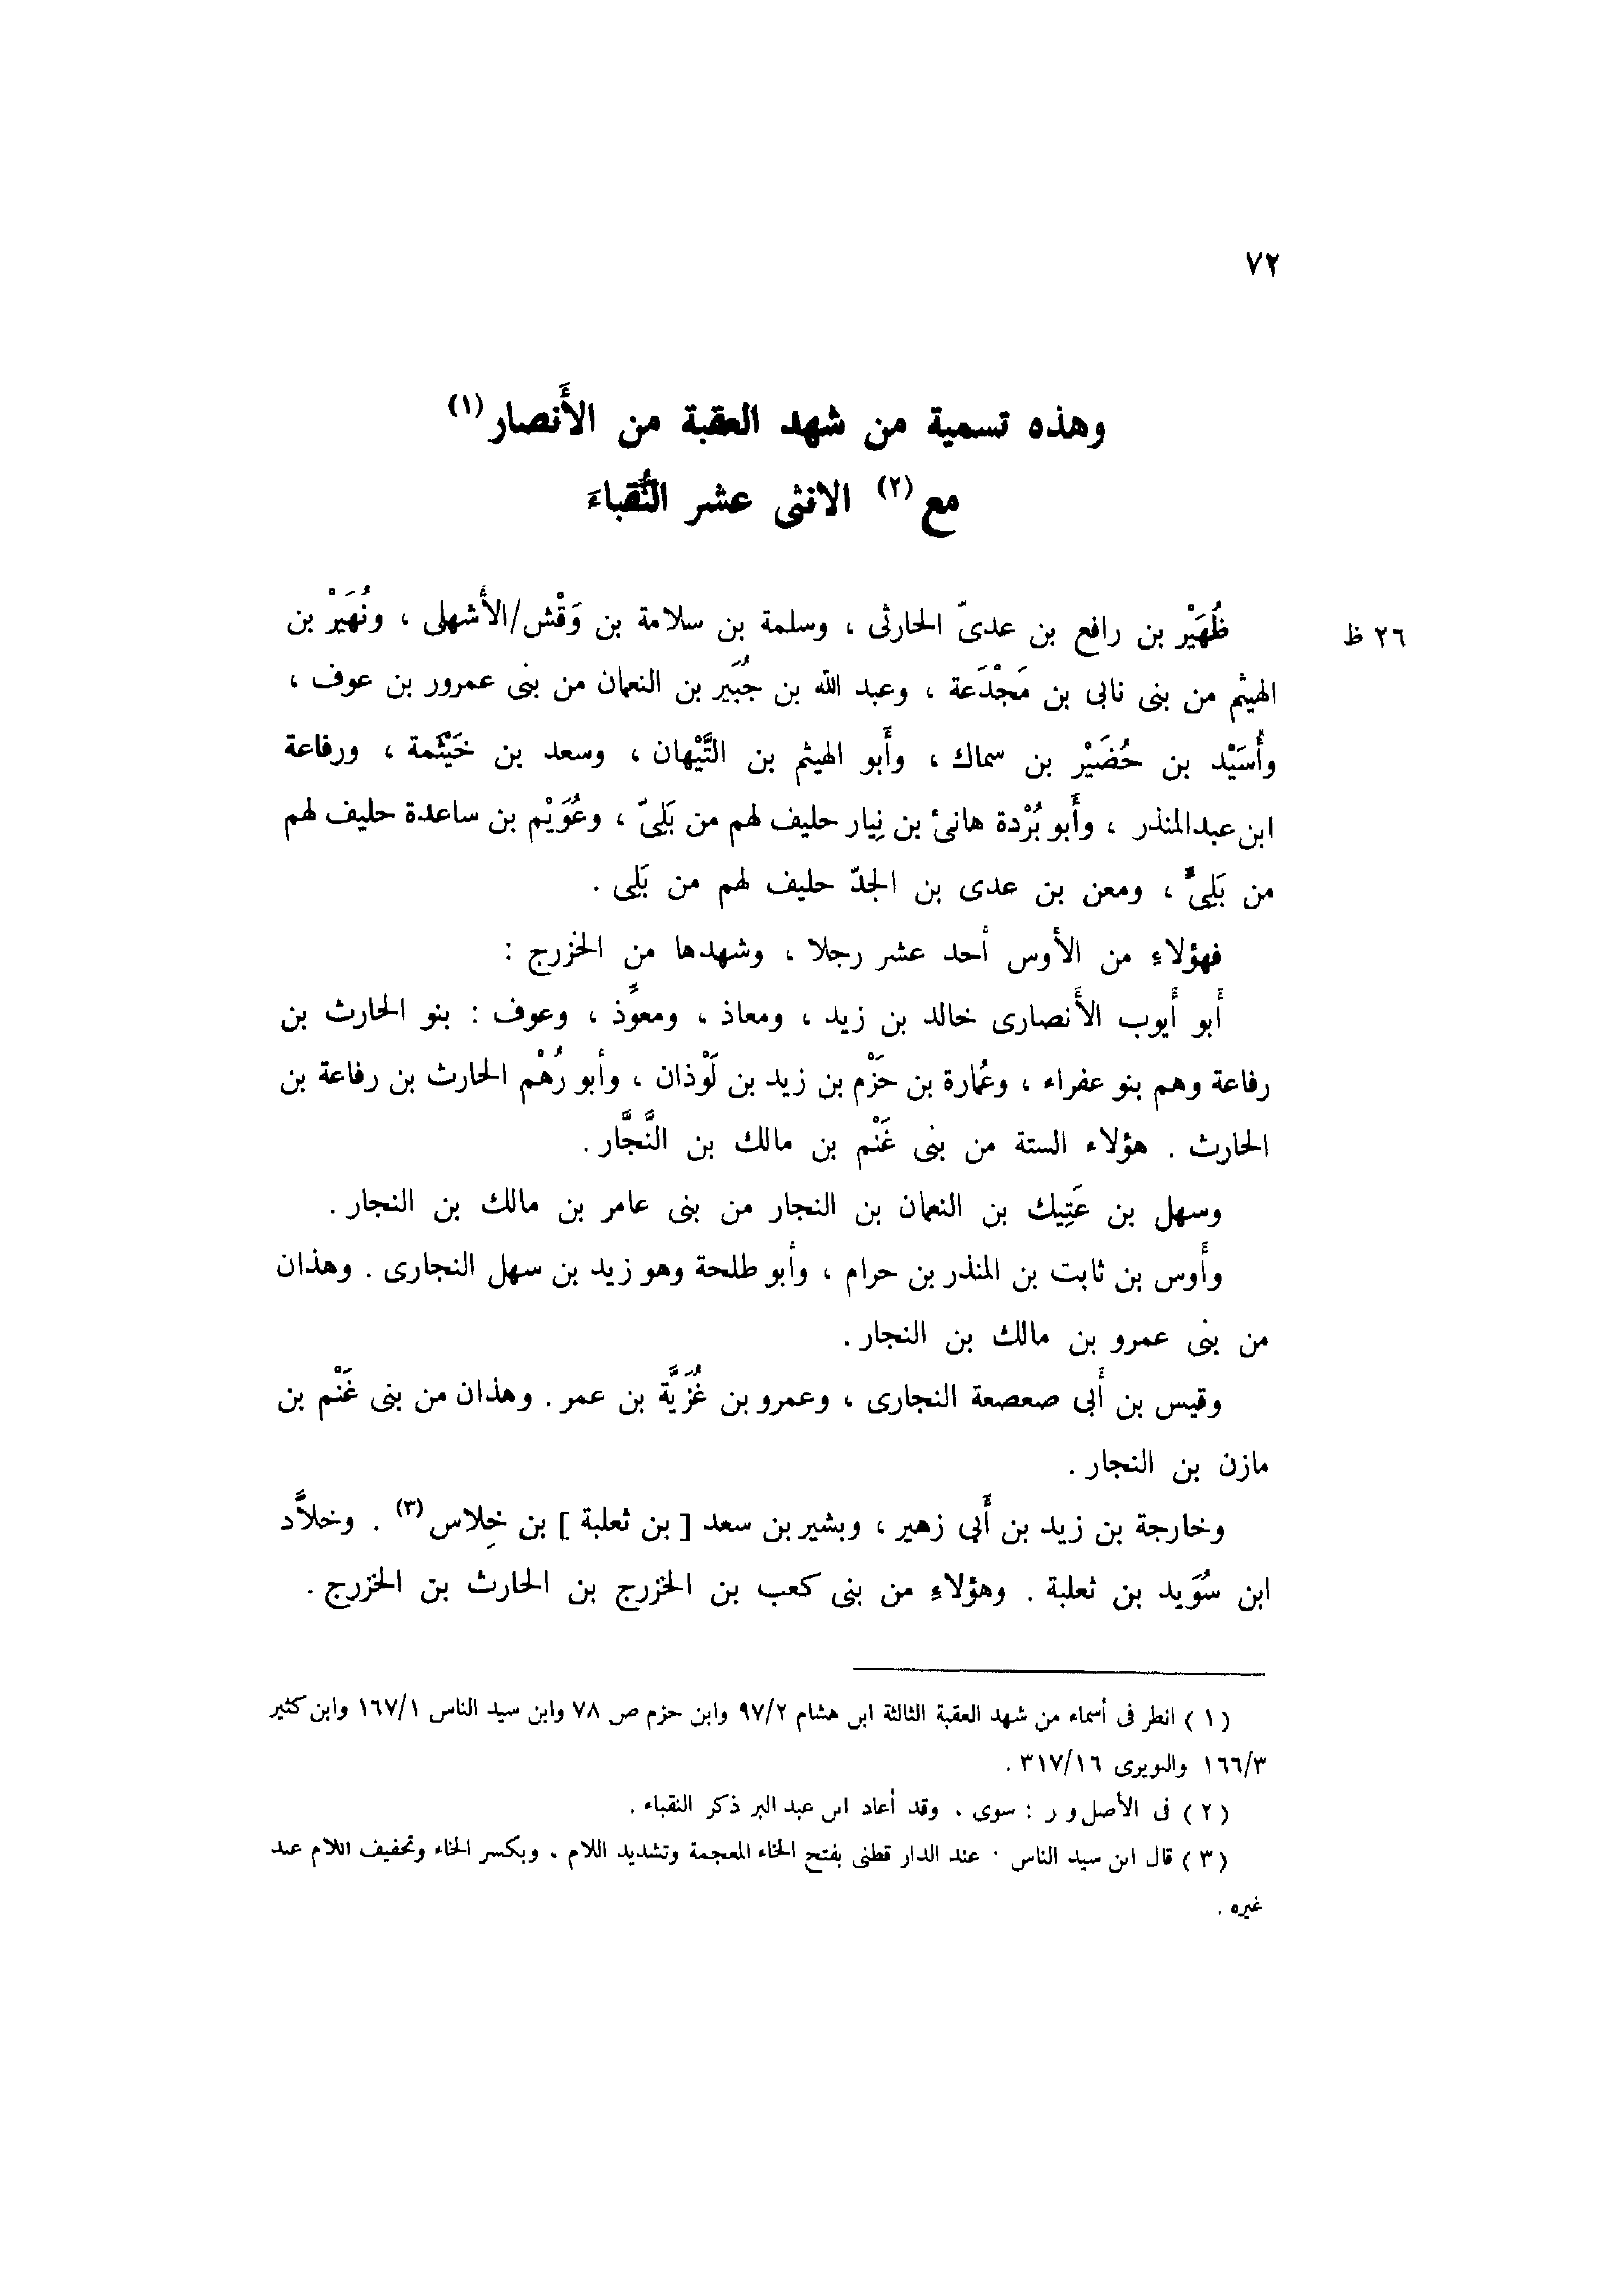 ٧٢
وهذه تسمية من شهد العقبة من الأَنصار (١)
مع (٢) الاثنى عشر النُّقباءَ
ظُهَيْر بن رافع بن عدىّ الحارثى ، وسلمة بن سلامة بن وَقْش/الأَشهلى ، ونُهَيْر بن
٢٦ ظ
الهيثم من بنى نابى بن مَجْدَعة ، وعبد الله بن جُبَير بن النعمان من بنى عمرور بن عوف ،
وأُسَيْد بن حُضَيْر بن سماك ، وأَبو الهيثم بن التَّيْهان ، وسعد بن خَيْثَمة ، ورفاعة
ابن عبدالمنذر ، وأَبو بُرْدة هانئ بن نِيار حليف لهم من بَلىّ ، وعُوَيْم بن ساعدة حليف لهم
من بَلِىّ ، ومعن بن عدى بن الجدّ حليف لهم من بَلِى .
فهؤلاءِ من الأَوس أحد عشر رجلا ، وشهدها من الخزرج :
أَبو أَيوب الأَنصارى خالد بن زيد ، ومعاذ ، ومعوِّذ ، وعوف : بنو الحارث بن
رفاعة وهم بنو عفراء ، وعُمارة بن حَزْم بن زيد بن لَوْذان ، وأبو رُهْم الحارث بن رفاعة بن
الحارث . هؤلاء الستة من بنى غَنْم بن مالك بن النَّجَّار .
وسهل بن عَتِيك بن النعمان بن النجار من بنى عامر بن مالك بن النجار .
وأَوس بن ثابت بن المنذر بن حرام ، وأبو طلحة وهو زيد بن سهل النجارى . وهذان
من بنى عمرو بن مالك بن النجار .
وقيس بن أَبى صعصعة النجارى ، وعمرو بن غُزَيَّة بن عمر . وهذان من بنى غَنْم بن
مازن بن النجار .
وخارجة بن زيد بن أَبى زهير ، وبشير بن سعد [ بن ثعلبة ] بن خِلاس (٣) . وخلاَّد
ابن سُوَيد بن ثعلبة . وهؤلاءِ من بنى كعب بن الخزرج بن الحارث بن الخزرج .
( ١ ) انظر فى أسماء من شهد العقبة الثالثة ابن هشام ٩٧/٢ وابن حزم ص ٧٨ وابن سيد الناس ١٦٧/١ وابن كثير
١٦٦/٣ والنويرى ٣١٧/١٦ .
( ٢ ) فى الأصل و ر : سوى . وقد أعاد ابن عبد البر ذكر النقباء .
( ٣ ) قال ابن سيد الناس · عند الدار قطنى بفتح الخاء المعجمة وتشديد اللام ، وبكسر الخاء وتخفيف اللام عند
غيره .